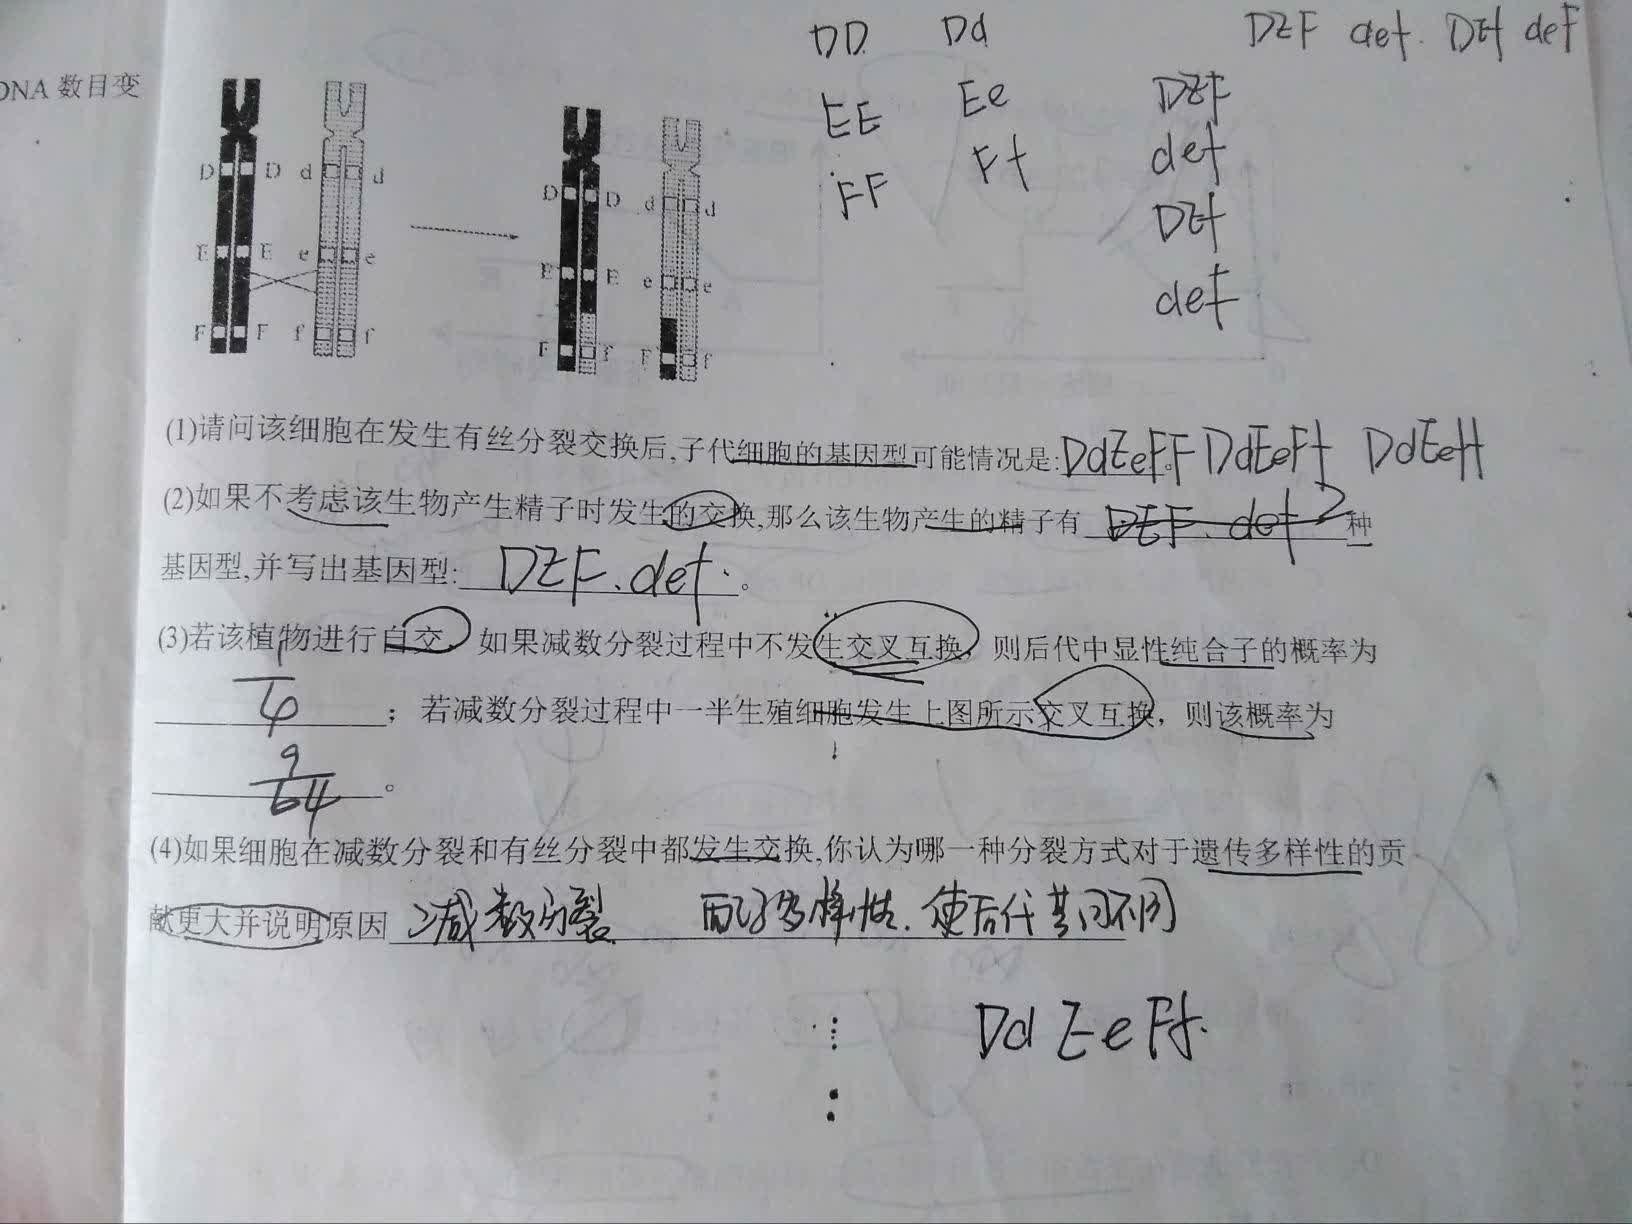 DD Dd DEF def. DEf deF
DNA 数目变
EE Ee DEF
FF Ff def
DEf
deF
D D d d
E E e e
F F f f
D D d d
E E e e
F f F f
(1)请问该细胞在发生有丝分裂交换后,子代细胞的基因型可能情况是: DdEeFF DdEeFf DdEeff
(2)如果不考虑该生物产生精子时发生的交换,那么该生物产生的精子有 DEF. def 2 种
基因型,并写出基因型: DEF.def. 。
(3)若该植物进行自交,如果减数分裂过程中不发生交叉互换,则后代中显性纯合子的概率为
1/4 ;若减数分裂过程中一半生殖细胞发生上图所示交叉互换,则该概率为
9/64 。
(4)如果细胞在减数分裂和有丝分裂中都发生交换,你认为哪一种分裂方式对于遗传多样性的贡
献更大并说明原因 减数分裂 配子多样性. 使后代基因不同
Dd Ee Ff.